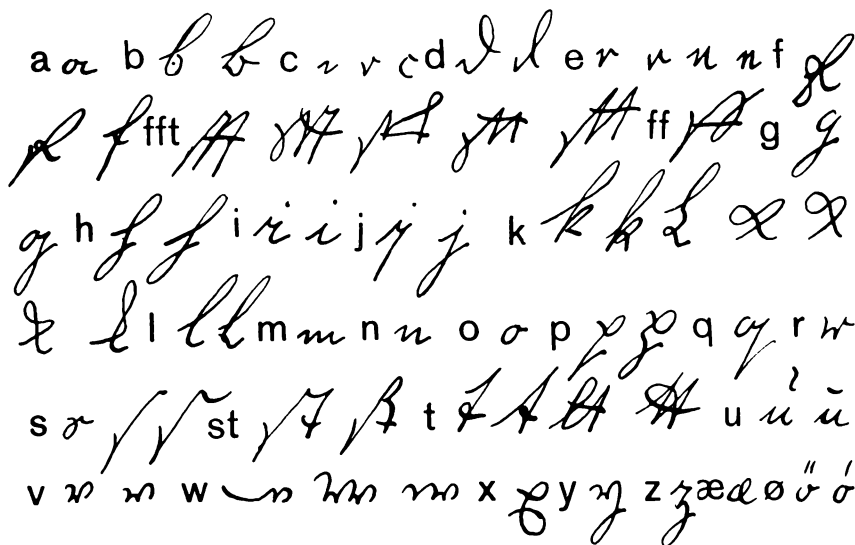 a a b b b c c c c d d d e e e e e f f
f f fft fft fft fft fft fft ff ff g g
g h h h i i i j j j k k k k k k
k k l l l m m n n o o p p p q q r r
s s s s st st st t t t tt tt u u u
v v v w w w w x x y y z z æ æ ø ö ó